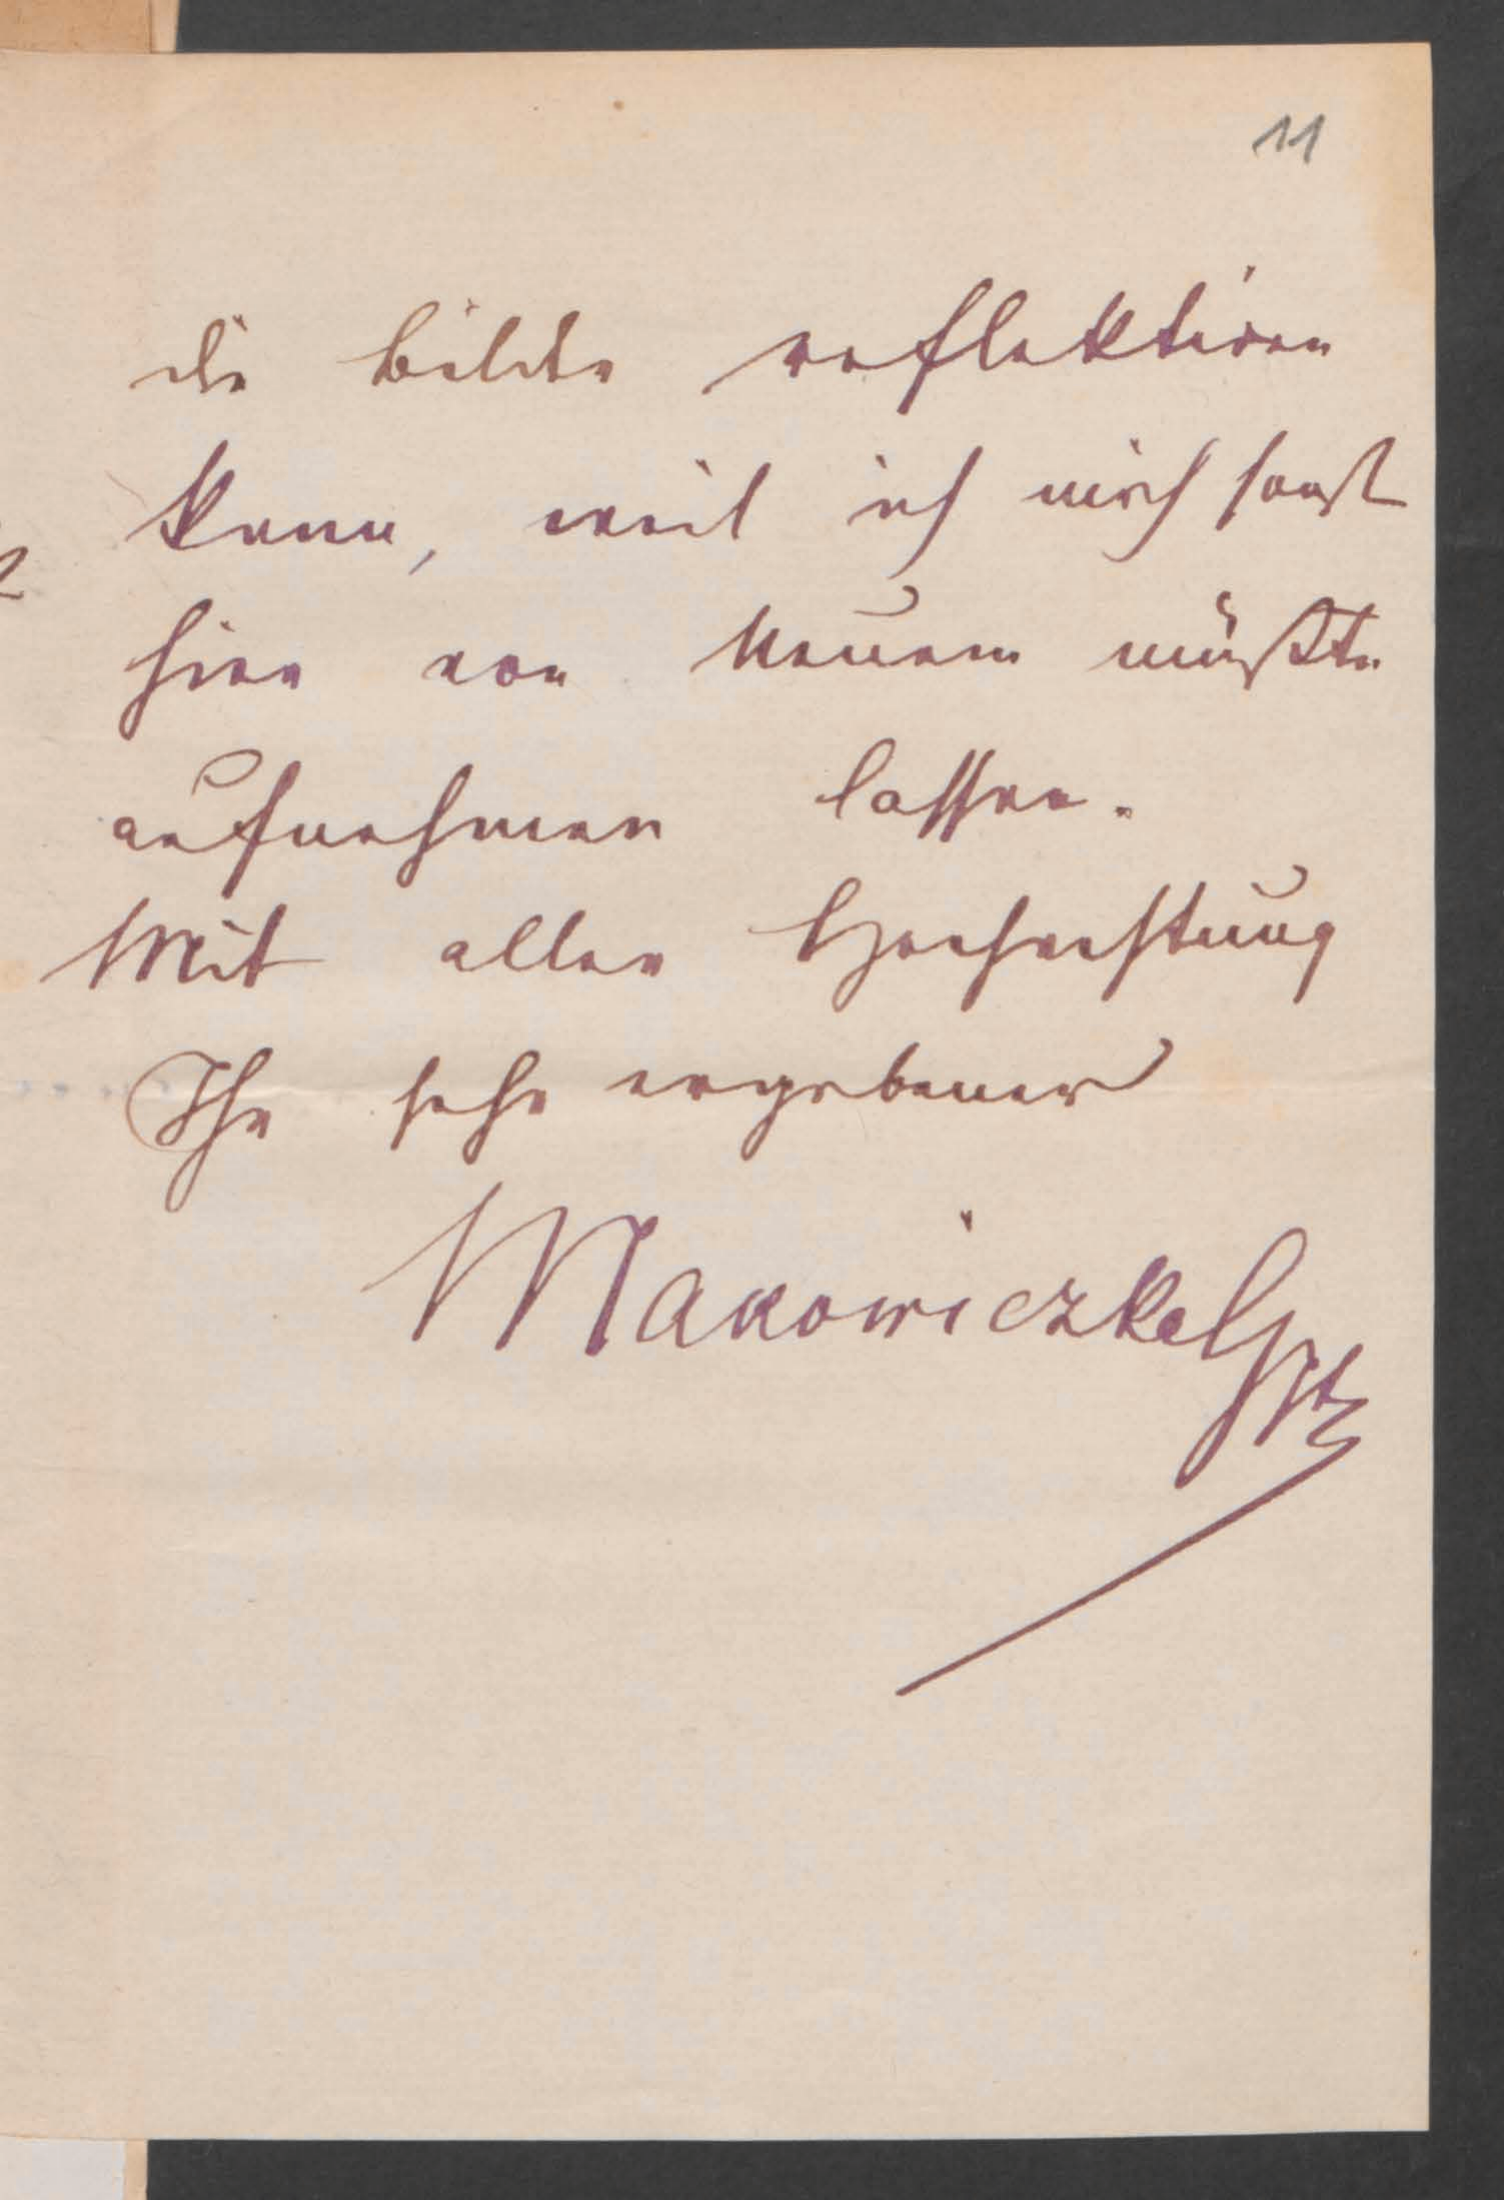 11
die Bilder reflektiren
kann, weil ich mich sonst
hier von Neuem müßte
aufnehmen lassen.
Mit aller Hochachtung
Ihr sehr ergebener
Makowiczka